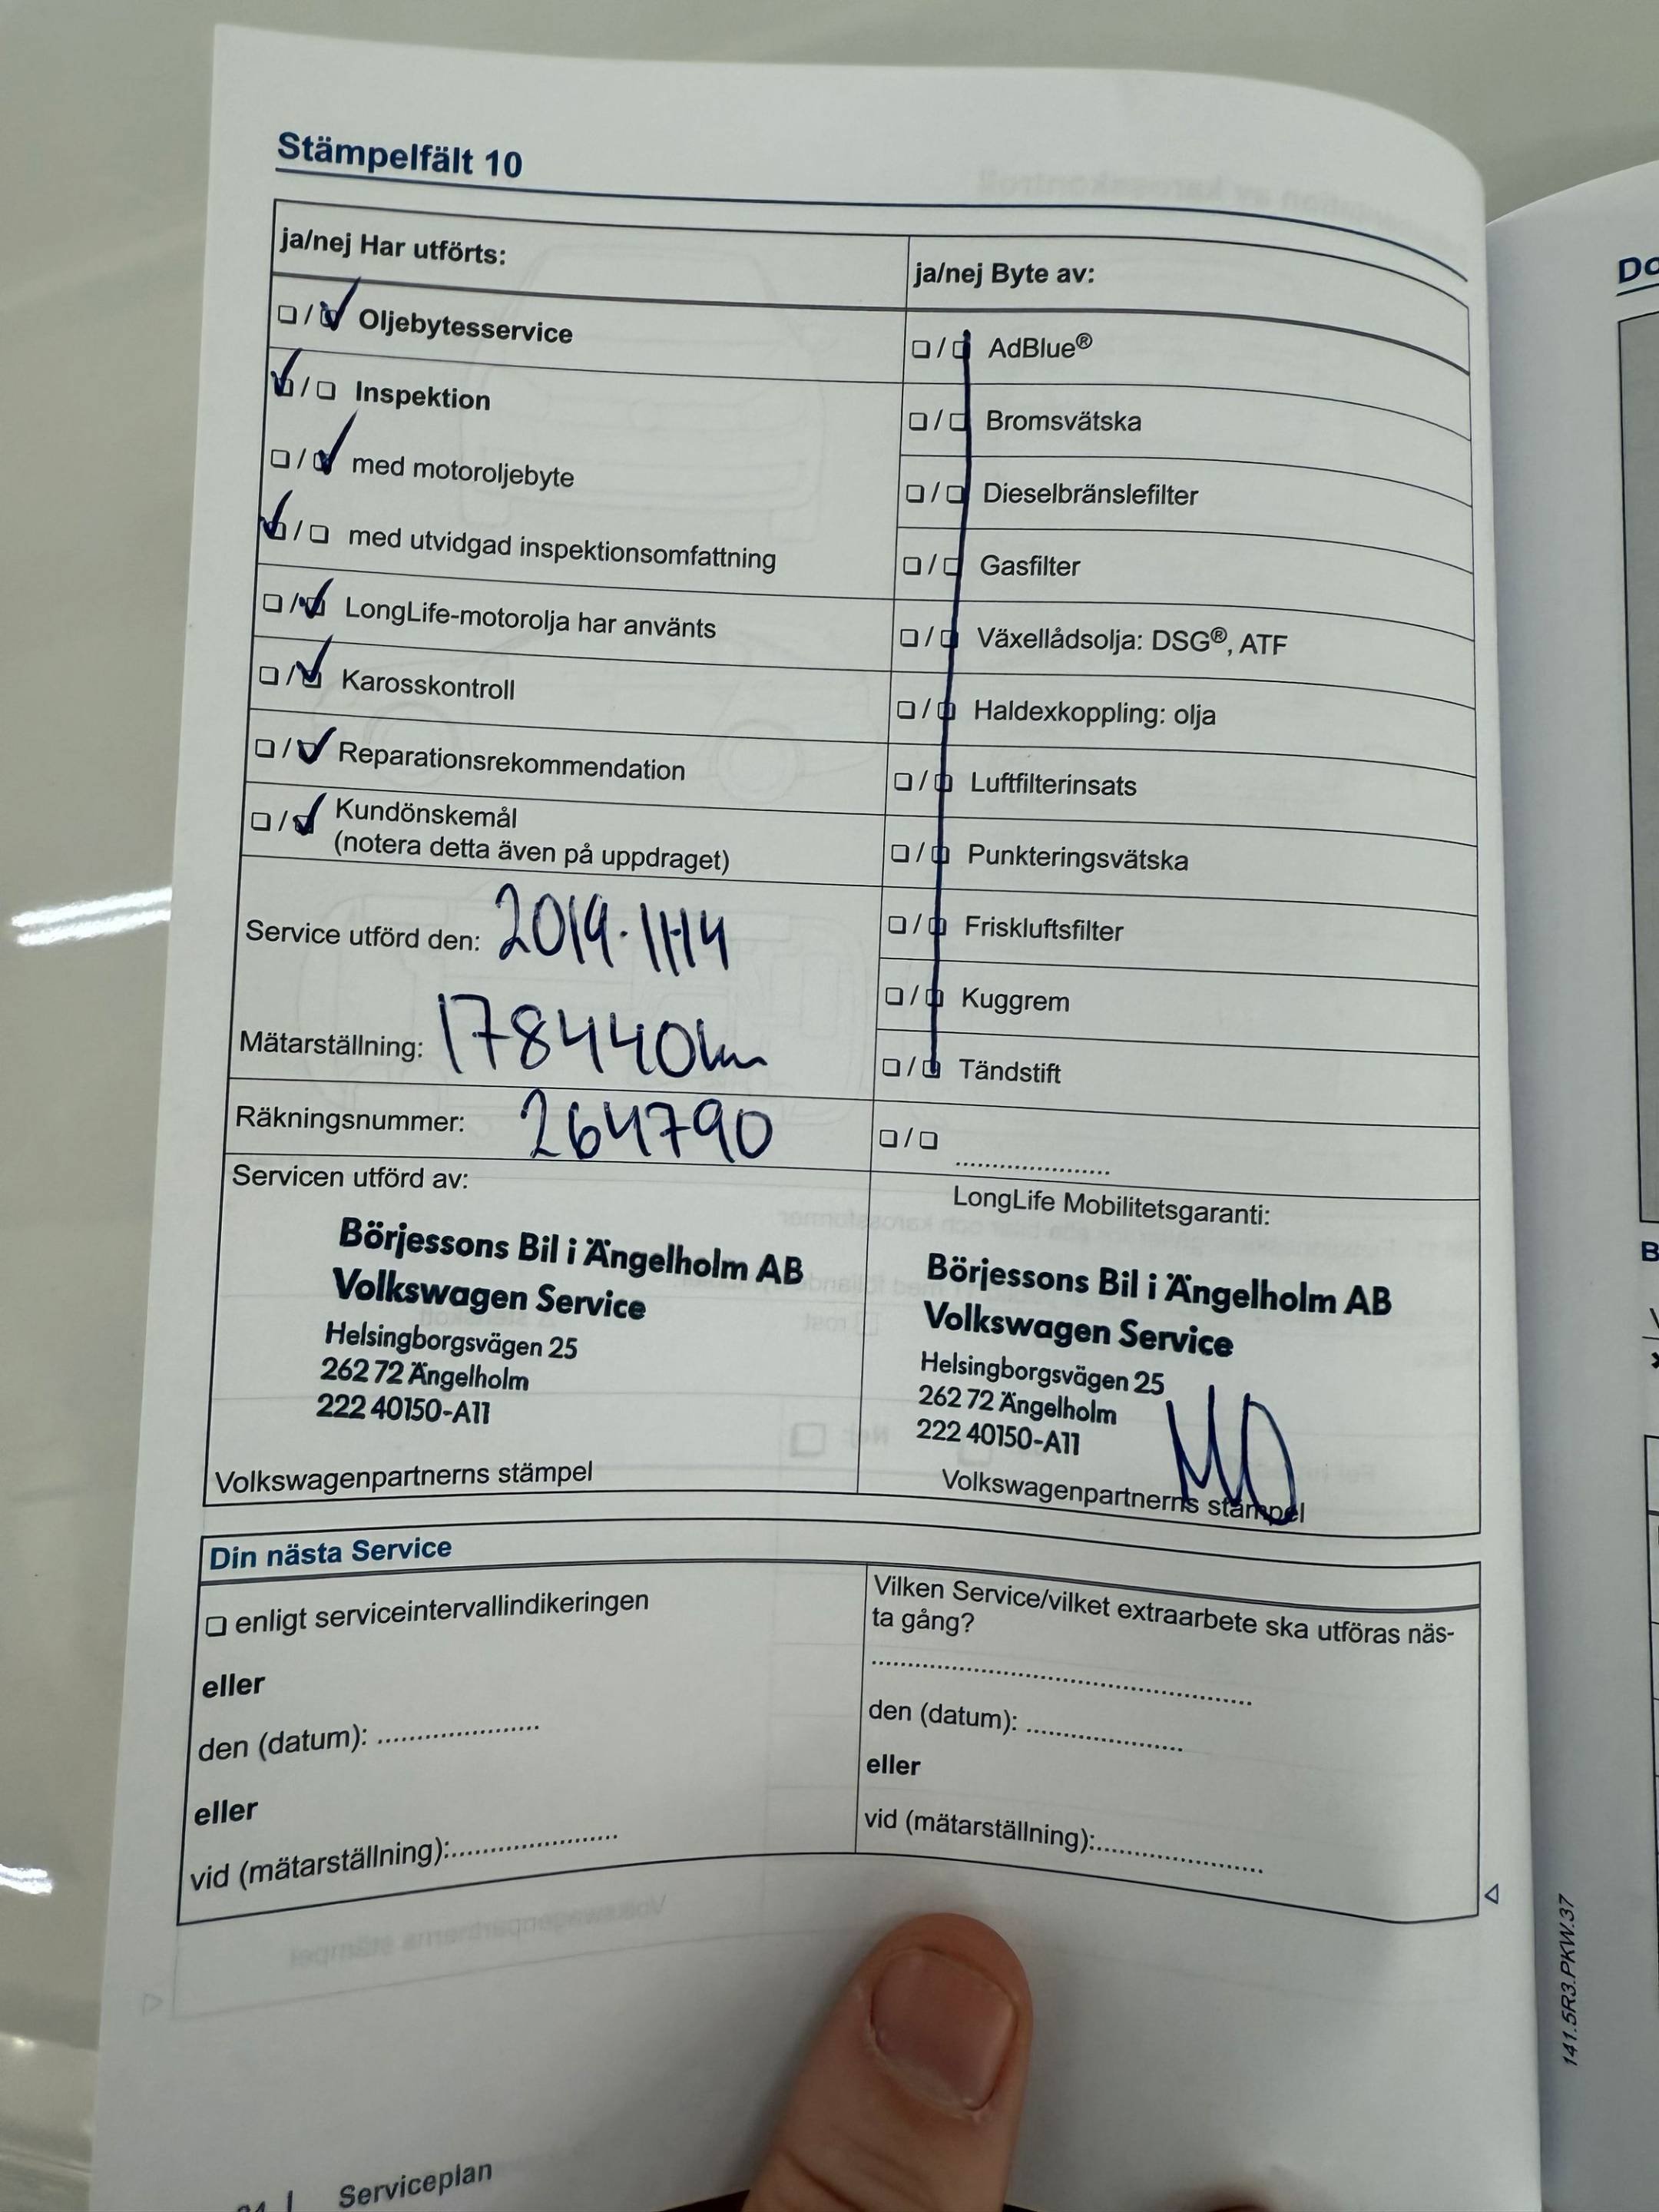 Stämpelfält 10
ja/nej Har utförts:
☐/☑ Oljebytesservice
☑/☐ Inspektion
☐/☑ med motoroljebyte
☑/☐ med utvidgad inspektionsomfattning
☐/☑ LongLife-motorolja har använts
☐/☑ Karosskontroll
☐/☑ Reparationsrekommendation
☐/☑ Kundönskemål
(notera detta även på uppdraget)
Service utförd den: 2019-11-14
Mätarställning: 178440km
Räkningsnummer: 264790
ja/nej Byte av:
☐/☐ AdBlue®
☐/☐ Bromsvätska
☐/☐ Dieselbränslefilter
☐/☐ Gasfilter
☐/☐ Växellådsolja: DSG®, ATF
☐/☐ Haldexkoppling: olja
☐/☐ Luftfilterinsats
☐/☐ Punkteringsvätska
☐/☐ Friskluftsfilter
☐/☐ Kuggrem
☐/☐ Tändstift
☐/☐ ......................
Servicen utförd av:
Börjessons Bil i Ängelholm AB
Volkswagen Service
Helsingborgsvägen 25
262 72 Ängelholm
222 40150-A11
Volkswagenpartnerns stämpel
LongLife Mobilitetsgaranti:
Börjessons Bil i Ängelholm AB
Volkswagen Service
Helsingborgsvägen 25
262 72 Ängelholm
222 40150-A11
Volkswagenpartnerns stämpel
Din nästa Service
☐ enligt serviceintervallindikeringen
eller
den (datum): ......................
eller
vid (mätarställning):......................
Vilken Service/vilket extraarbete ska utföras näs-
ta gång?
..................................................
den (datum): ......................
eller
vid (mätarställning):......................
Serviceplan
141.5R3.PKW.37